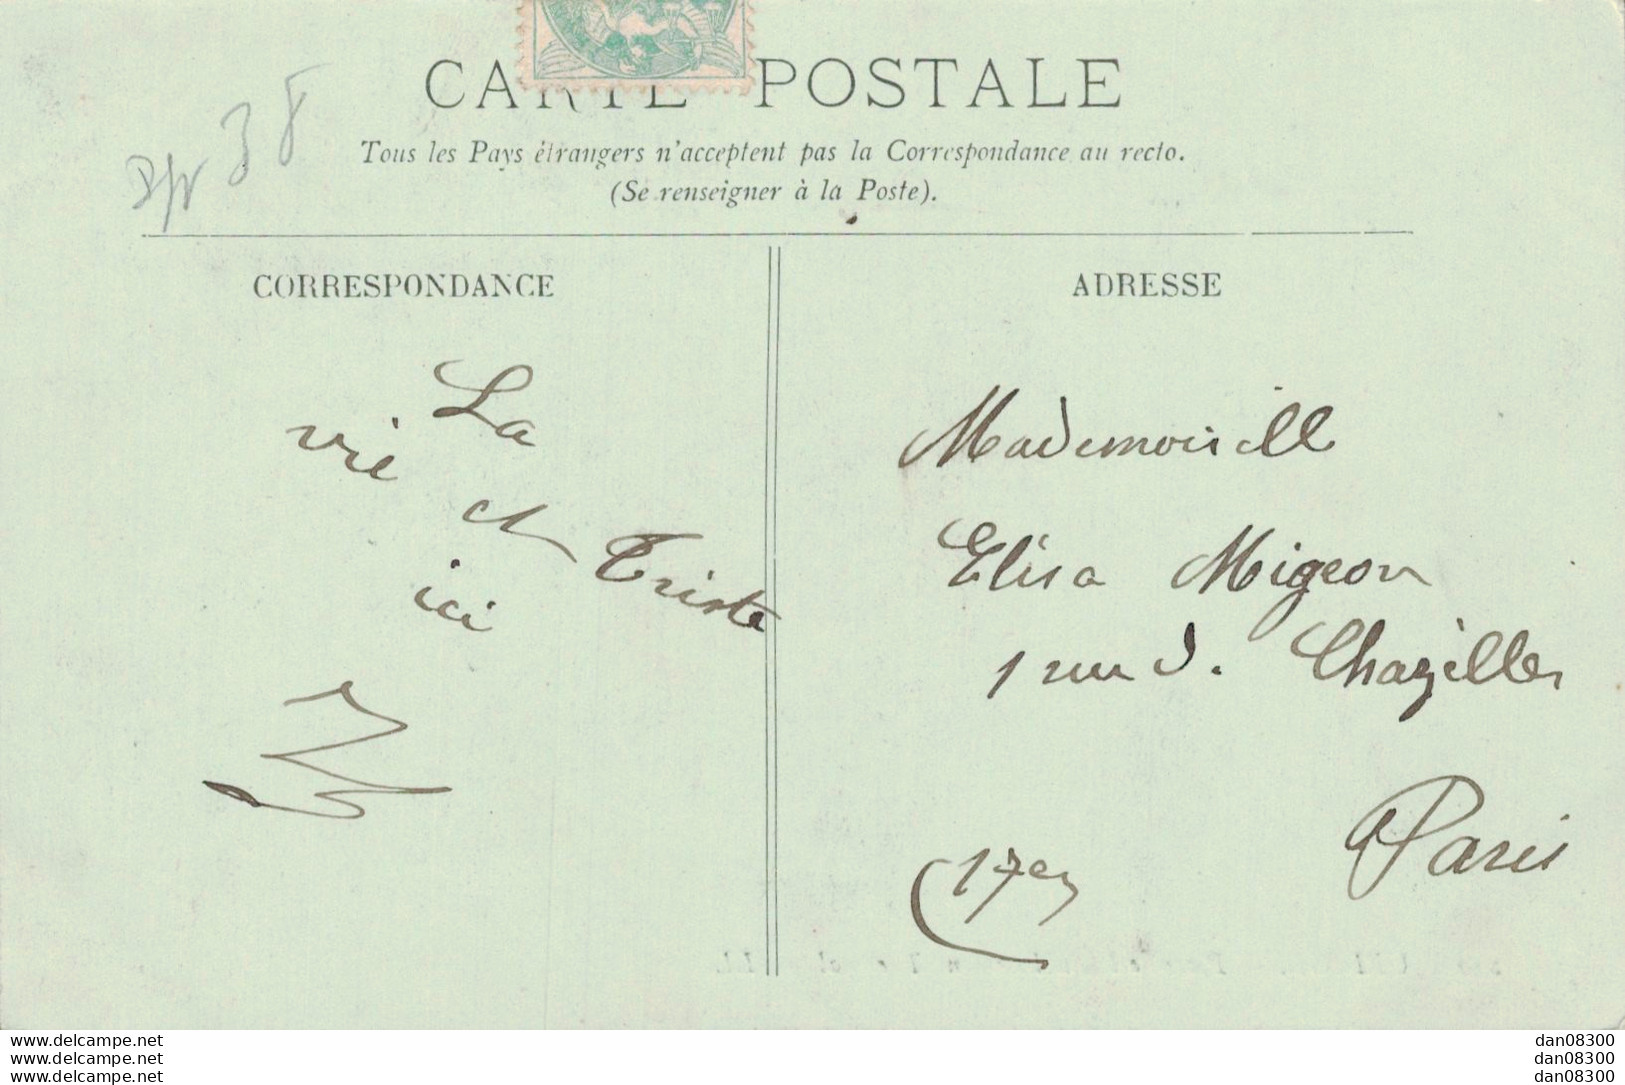 CARTE POSTALE
Tous les Pays étrangers n'acceptent pas la Correspondance au recto.
(Se renseigner à la Poste).
38
CORRESPONDANCE
La
vie
est
triste
ici
ADRESSE
Mademoiselle
Elisa Migeon
1 rue d. Chazelles
Paris
(17e)
www.delcampe.net
www.delcampe.net
www.delcampe.net
dan08300
dan08300
dan08300